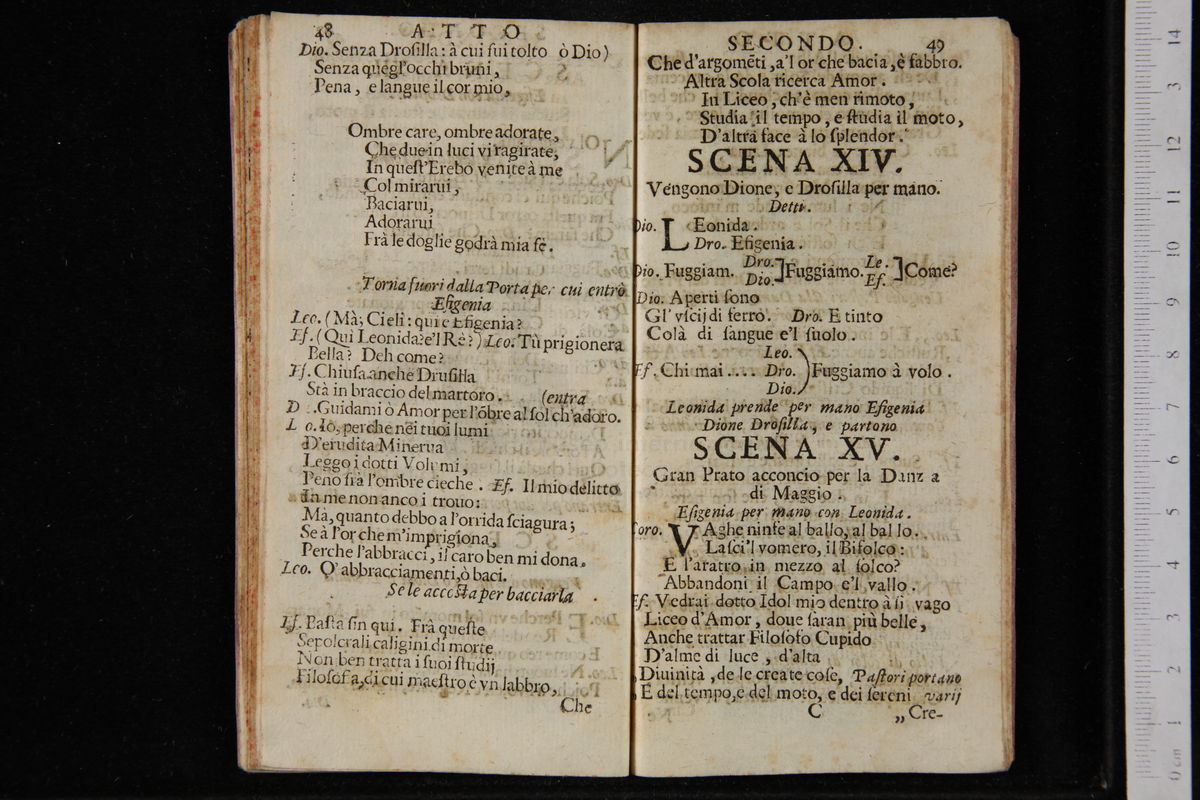 48 ATTO
Dio. Senza Droſilla: à cui fui tolto ò Dio)
Senza quegl'occhi bruni,
Pena, e langue il cor mio,
Ombre care, ombre adorate,
Che due in luci vi ragirate,
In queſt'Erebo venite à me
Col mirarui,
Baciarui,
Adorarui
Frà le doglie godrà mia fè.
Torna fuori dalla Porta per cui entrò
Efigenia
Leo. (Mà; Cieli: qui è Efigenia?
Ef. (Qui Leonida? e'l Rè?) Leo. Tù prigionera
Bella? Deh come?
Ef. Chiuſa anche Druſilla
Stà in braccio del martoro. (entra
D . Guidami ò Amor per l'õbre al ſol ch'adoro.
L o. Iò, perche nei tuoi lumi
D'erudita Minerua
Leggo i dotti Volumi,
Peno frà l'ombre cieche. Ef. Il mio delitto
In me non anco i trouo:
Mà, quanto debbo a l'orrida ſciagura;
Se à l'or che m'imprigiona,
Perche l'abbracci, il caro ben mi dona.
Leo. O' abbracciamenti, ò baci.
Se le accoſta per bacciarla
Ef. Baſta fin qui. Frà queſte
Sepolcrali caligini di morte
Non ben tratta i ſuoi ſtudij
Filoſofa, di cui maeſtro è vn labbro,
Che
SECONDO. 49
Che d'argomẽti, a'l or che bacia, è fabbro.
Altra Scola ricerca Amor.
In Liceo, ch'è men rimoto,
Studia il tempo, e ſtudia il moto,
D'altra face à lo ſplendor.
SCENA XIV.
Vengono Dione, e Droſilla per mano.
Detti.
Dio. LEonida.
Dro. Efigenia.
Dio. Fuggiam. Dro. Dio.] Fuggiamo. Le. Ef.] Come?
Dio. Aperti ſono
Gl' vſcij di ferro. Dro. E tinto
Colà di ſangue e'l ſuolo.
Leo.
Ef. Chi mai .... Dro. ) Fuggiamo à volo.
Dio.
Leonida prende per mano Efigenia
Dione Droſilla, e partono
SCENA XV.
Gran Prato acconcio per la Danz a
di Maggio.
Efigenia per mano con Leonida.
Coro. VAghe ninfe al ballo, al bal lo.
Laſci'l vomero, il Bifolco:
E l'aratro in mezzo al ſolco?
Abbandoni il Campo e'l vallo.
Ef. Vedrai dotto Idol mio dentro à ſi vago
Liceo d'Amor, doue ſaran più belle,
Anche trattar Filoſofo Cupido
D'alme di luce, d'alta
Diuinità, de le create coſe, Paſtori portano
E del tempo, e del moto, e dei ſereni varij
C „Cre-